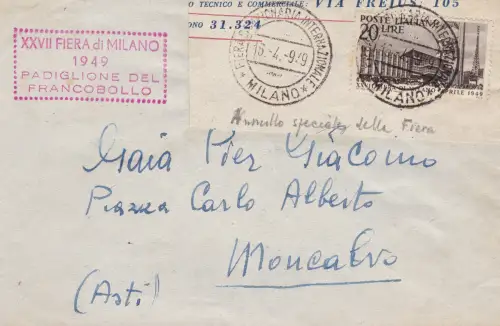 TECNICO E COMMERCIALE: VIA FREJUS, 105
ONO 31.324
XXVII FIERA di MILANO
1949
PADIGLIONE DEL
FRANCOBOLLO
FIERA CAMPIONARIA INTERNAZIONALE
16-4-949
* MILANO *
POSTE ITALIANE
20
LIRE
MILANO *
APRILE 1949
Annullo speciale della Fiera
Gaia Pier Giacomo
Piazza Carlo Alberto
Moncalvo
(Asti)